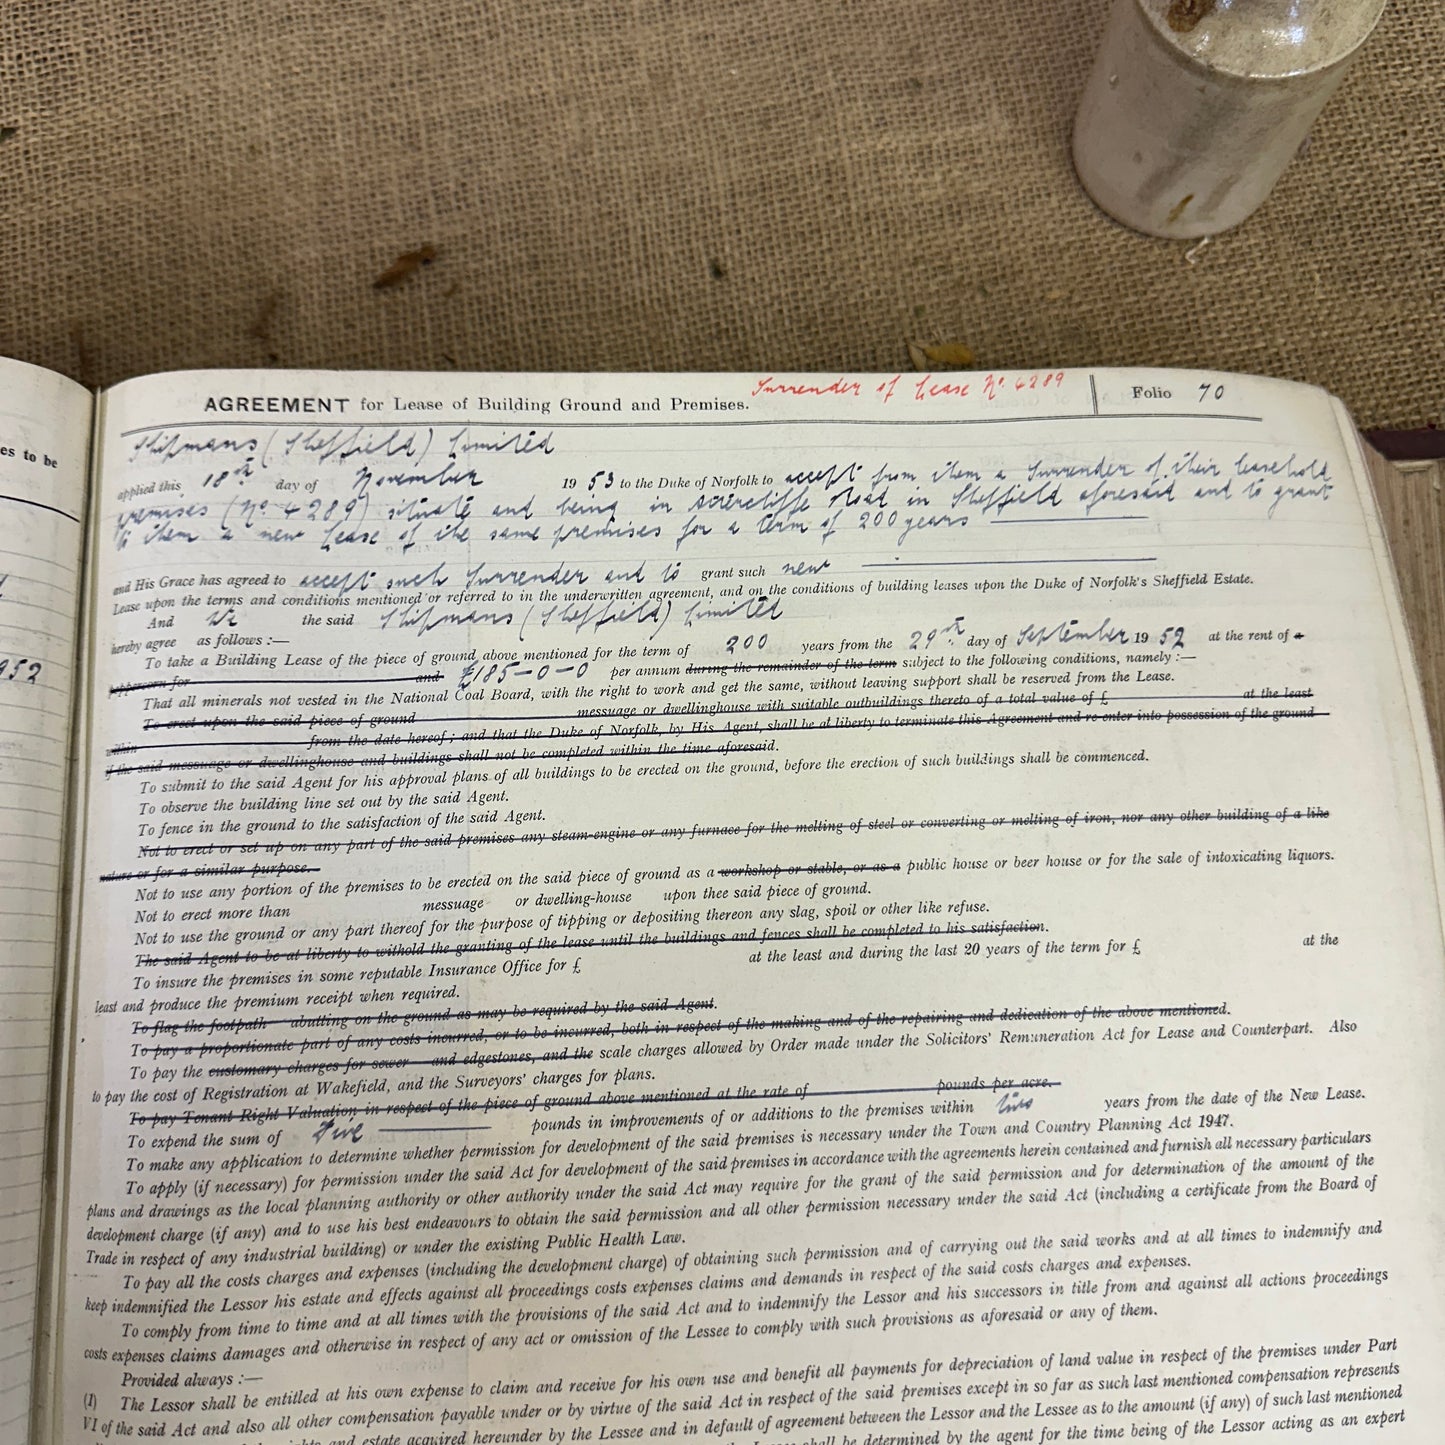 es to be
952
AGREEMENT for Lease of Building Ground and Premises. Surrender of Lease No. 4289 Folio 70
Shipmans (Sheffield) Limited
applied this 18th day of November 1953 to the Duke of Norfolk to accept from them a Surrender of their leasehold
premises (No. 4289) situate and being in Sutercliffe Road in Sheffield aforesaid and to grant
to them a new Lease of the same premises for a term of 200 years
and His Grace has agreed to accept such Surrender and to grant such new
Lease upon the terms and conditions mentioned or referred to in the underwritten agreement, and on the conditions of building leases upon the Duke of Norfolk's Sheffield Estate.
And We the said Shipmans (Sheffield) Limited
hereby agree as follows :—
To take a Building Lease of the piece of ground above mentioned for the term of 200 years from the 29th day of September 1952 at the rent of a
peppercorn for and £185-0-0 per annum during the remainder of the term subject to the following conditions, namely :—
That all minerals not vested in the National Coal Board, with the right to work and get the same, without leaving support shall be reserved from the Lease.
To erect upon the said piece of ground messuage or dwellinghouse with suitable outbuildings thereto of a total value of £ at the least
within from the date hereof; and that the Duke of Norfolk, by His Agent, shall be at liberty to terminate this Agreement and re-enter into possession of the ground
if the said messuage or dwellinghouse and buildings shall not be completed within the time aforesaid.
To submit to the said Agent for his approval plans of all buildings to be erected on the ground, before the erection of such buildings shall be commenced.
To observe the building line set out by the said Agent.
To fence in the ground to the satisfaction of the said Agent.
Not to erect or set up on any part of the said premises any steam-engine or any furnace for the melting of steel or converting or melting of iron, nor any other building of a like
nature or for a similar purpose.
Not to use any portion of the premises to be erected on the said piece of ground as a workshop or stable, or as a public house or beer house or for the sale of intoxicating liquors.
Not to erect more than messuage or dwelling-house upon thee said piece of ground.
Not to use the ground or any part thereof for the purpose of tipping or depositing thereon any slag, spoil or other like refuse.
The said Agent to be at liberty to withold the granting of the lease until the buildings and fences shall be completed to his satisfaction.
To insure the premises in some reputable Insurance Office for £ at the least and during the last 20 years of the term for £ at the
least and produce the premium receipt when required.
To flag the footpath abutting on the ground as may be required by the said Agent.
To pay a proportionate part of any costs incurred, or to be incurred, both in respect of the making and of the repairing and dedication of the above mentioned.
To pay the customary charges for sewer and edgestones, and the scale charges allowed by Order made under the Solicitors' Remuneration Act for Lease and Counterpart. Also
to pay the cost of Registration at Wakefield, and the Surveyors' charges for plans.
To pay Tenant Right Valuation in respect of the piece of ground above mentioned at the rate of pounds per acre.
To expend the sum of Five pounds in improvements of or additions to the premises within two years from the date of the New Lease.
To make any application to determine whether permission for development of the said premises is necessary under the Town and Country Planning Act 1947.
To apply (if necessary) for permission under the said Act for development of the said premises in accordance with the agreements herein contained and furnish all necessary particulars
plans and drawings as the local planning authority or other authority under the said Act may require for the grant of the said permission and for determination of the amount of the
development charge (if any) and to use his best endeavours to obtain the said permission and all other permission necessary under the said Act (including a certificate from the Board of
Trade in respect of any industrial building) or under the existing Public Health Law.
To pay all the costs charges and expenses (including the development charge) of obtaining such permission and of carrying out the said works and at all times to indemnify and
keep indemnified the Lessor his estate and effects against all proceedings costs expenses claims and demands in respect of the said costs charges and expenses.
To comply from time to time and at all times with the provisions of the said Act and to indemnify the Lessor and his successors in title from and against all actions proceedings
costs expenses claims damages and otherwise in respect of any act or omission of the Lessee to comply with such provisions as aforesaid or any of them.
Provided always :—
(1) The Lessor shall be entitled at his own expense to claim and receive for his own use and benefit all payments for depreciation of land value in respect of the premises under Part
VI of the said Act and also all other compensation payable under or by virtue of the said Act in respect of the said premises except in so far as such last mentioned compensation represents
rights and estate acquired hereunder by the Lessee and in default of agreement between the Lessor and the Lessee as to the amount (if any) of such last mentioned
shall be determined by the agent for the time being of the Lessor acting as an expert